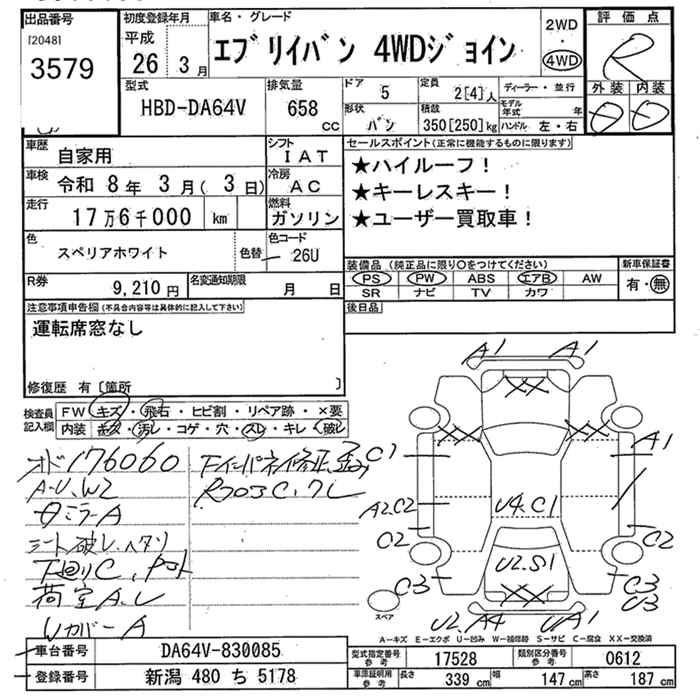 出品番号
[2048]
3579
初度登録年月
平成
26 3月
車名・グレード
エブリイバン 4WDジョイン
2WD
・
4WD
評価点
R
外装 内装
型式
HBD-DA64V
排気量
658
cc
ドア
5
定員
2[4]人
形状
バン
積載
350[250]kg
ディーラー・並行
モデル年式 年
ハンドル 左・右
車歴
自家用
シフト
IAT
車検
令和 8年 3月( 3日)
冷房
AC
走行
17万6千000 km
燃料
ガソリン
色
スペリアホワイト
色替
色コード
26U
R券
9,210 円
名変通知期限
月 日
セールスポイント(正常に機能するものに限ります)
★ハイルーフ!
★キーレスキー!
★ユーザー買取車!
装備品 (純正品に限り○をつけてください)
新車保証書
PS PW ABS エアB AW
SR ナビ TV カワ
有・無
後日品
注意事項申告欄(不具合内容等は具体的に記入して下さい)
運転席窓なし
修復歴 有 [箇所 ]
検査員記入欄
FW キズ・飛石・ヒビ割・リペア跡・×要
内装 キズ・汚レ・コゲ・穴・スレ・キレ・破レ
オド176060
A-U、W2
シート破レ、ヘタリ
下廻りC、
荷室A、U
WカバーA
A1 A1
C1 A1
A2.C2 U4.C1
C2 C2
U2.S1
C3 C3
U3
U2.A4 UA1
スペア
A-キズ E-エクボ U-凹み W-補修跡 S-サビ C-腐食 XX-交換済
車台番号
DA64V-830085
登録番号
新潟 480 ち 5178
型式指定番号
参考
17528
類別区分番号
参考
0612
車庫証明用
参考
長さ 339 cm 幅 147 cm 高さ 187 cm